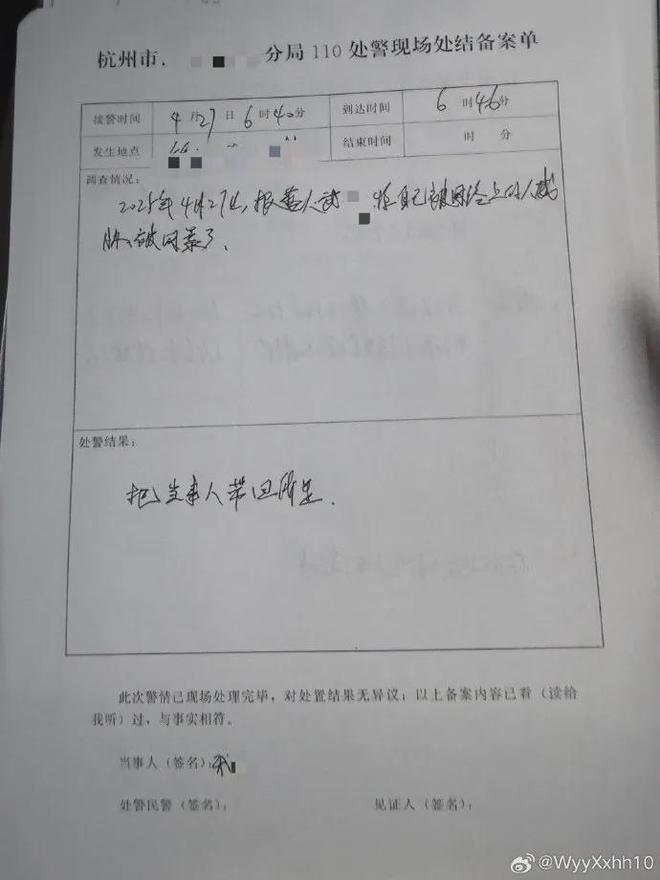 杭州市 分局110处警现场处结备案单
接警时间 4月27日6时40分 到达时间 6时46分
发生地点 结束时间 时 分
调查情况:
2025年4月27日,报警人 自己被网络上的人威
胁,被网暴了.
处警结果:
把当事人带回所里.
此次警情已现场处理完毕,对处置结果无异议;以上备案内容已看(读给
我听)过,与事实相符。
当事人(签名):
处警民警(签名): 见证人(签名):
@WyyXxhh10